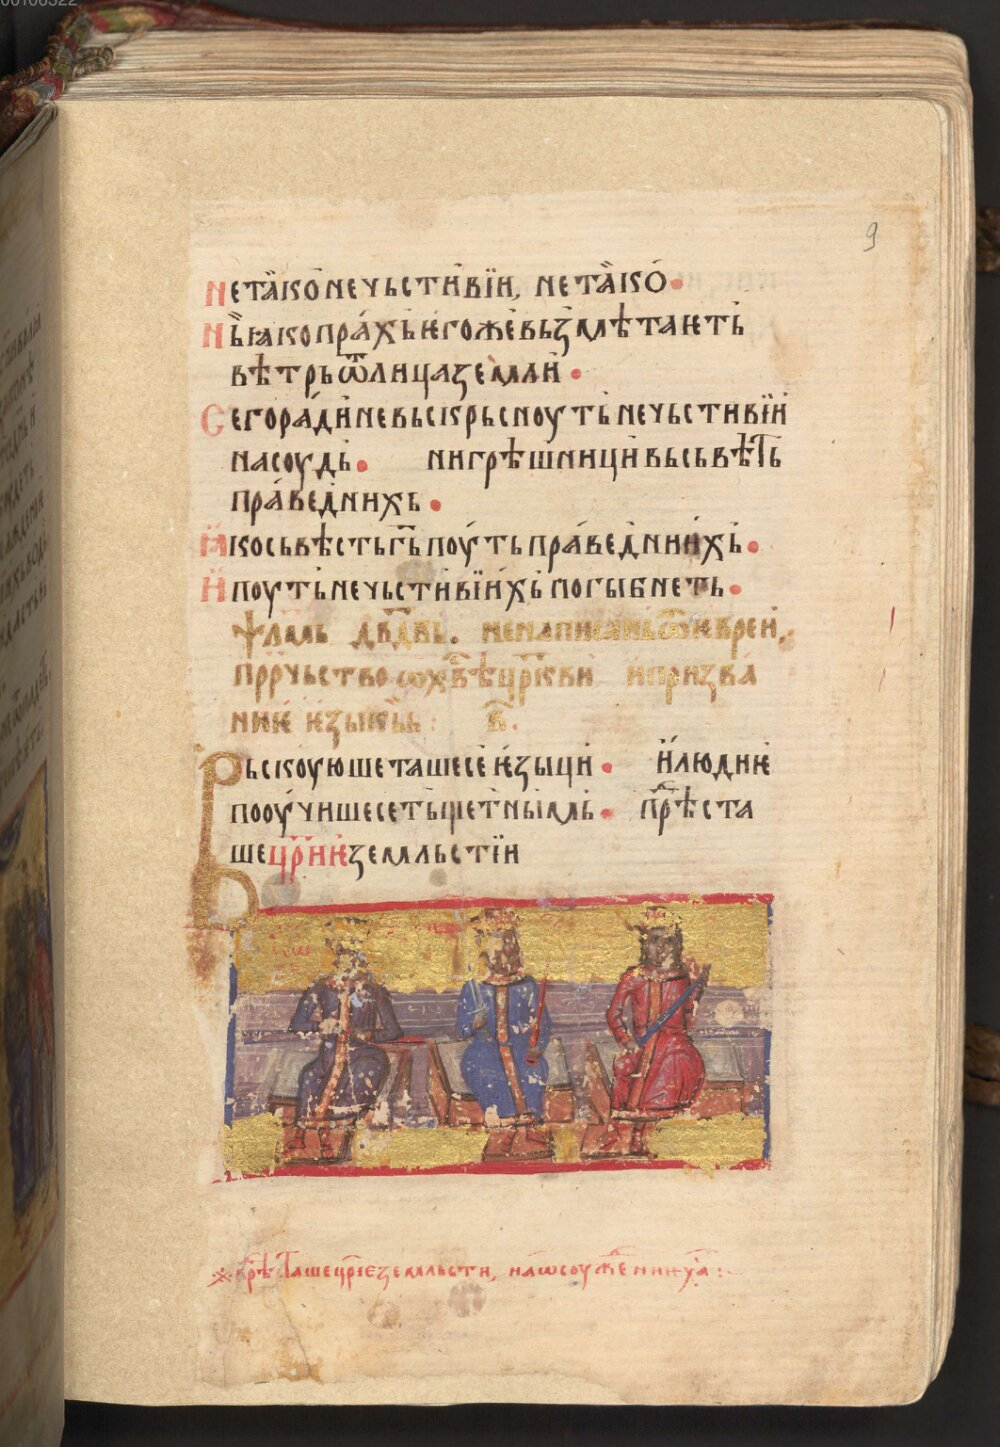 00106322
9
Не та̏ко̀ нечьсти́вїи, не та̏ко̀•
Нь̏ ꙗко пра́хь ѥгоже вьзмѣтаѥть
вѣтрь ѿ лица земли•
Сего ра́ди не вьскрьсноуть нечьсти́вїи
на соудь• ни грѣшници вь сьвѣⷮь
пра́веднихь•
Ꙗко сьвѣсть г҃ь поу́ть пра́веднии́хь•
И поуть нечьсти́вїи́хь погыбнеть•
ѱаль́мь дв҃двь. ненаписань ѿ ѥвреи,
прⷪ҇рчьство ѡ х҃вѣ цр҃кви и призва
ниѥ ѥзыкѡь : в҃.
Вьскоую шеташе се ѥзыци• и людиѥ
пооу́чише се тьщетны́мь• прⷣѣста
ше цр҃иѥ земльстїи
прⷣѣсташе цр҃їе земльсти, на ѡсоужⷣениѥ х҃а :